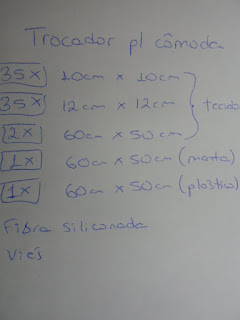 Trocador p/ cômoda
35x 10cm x 10cm
35x 12cm x 12cm
tecido
2x 60cm x 50cm
1x 60cm x 50cm (manta)
1x 60cm x 50cm (plástico)
Fibra siliconada
Viés